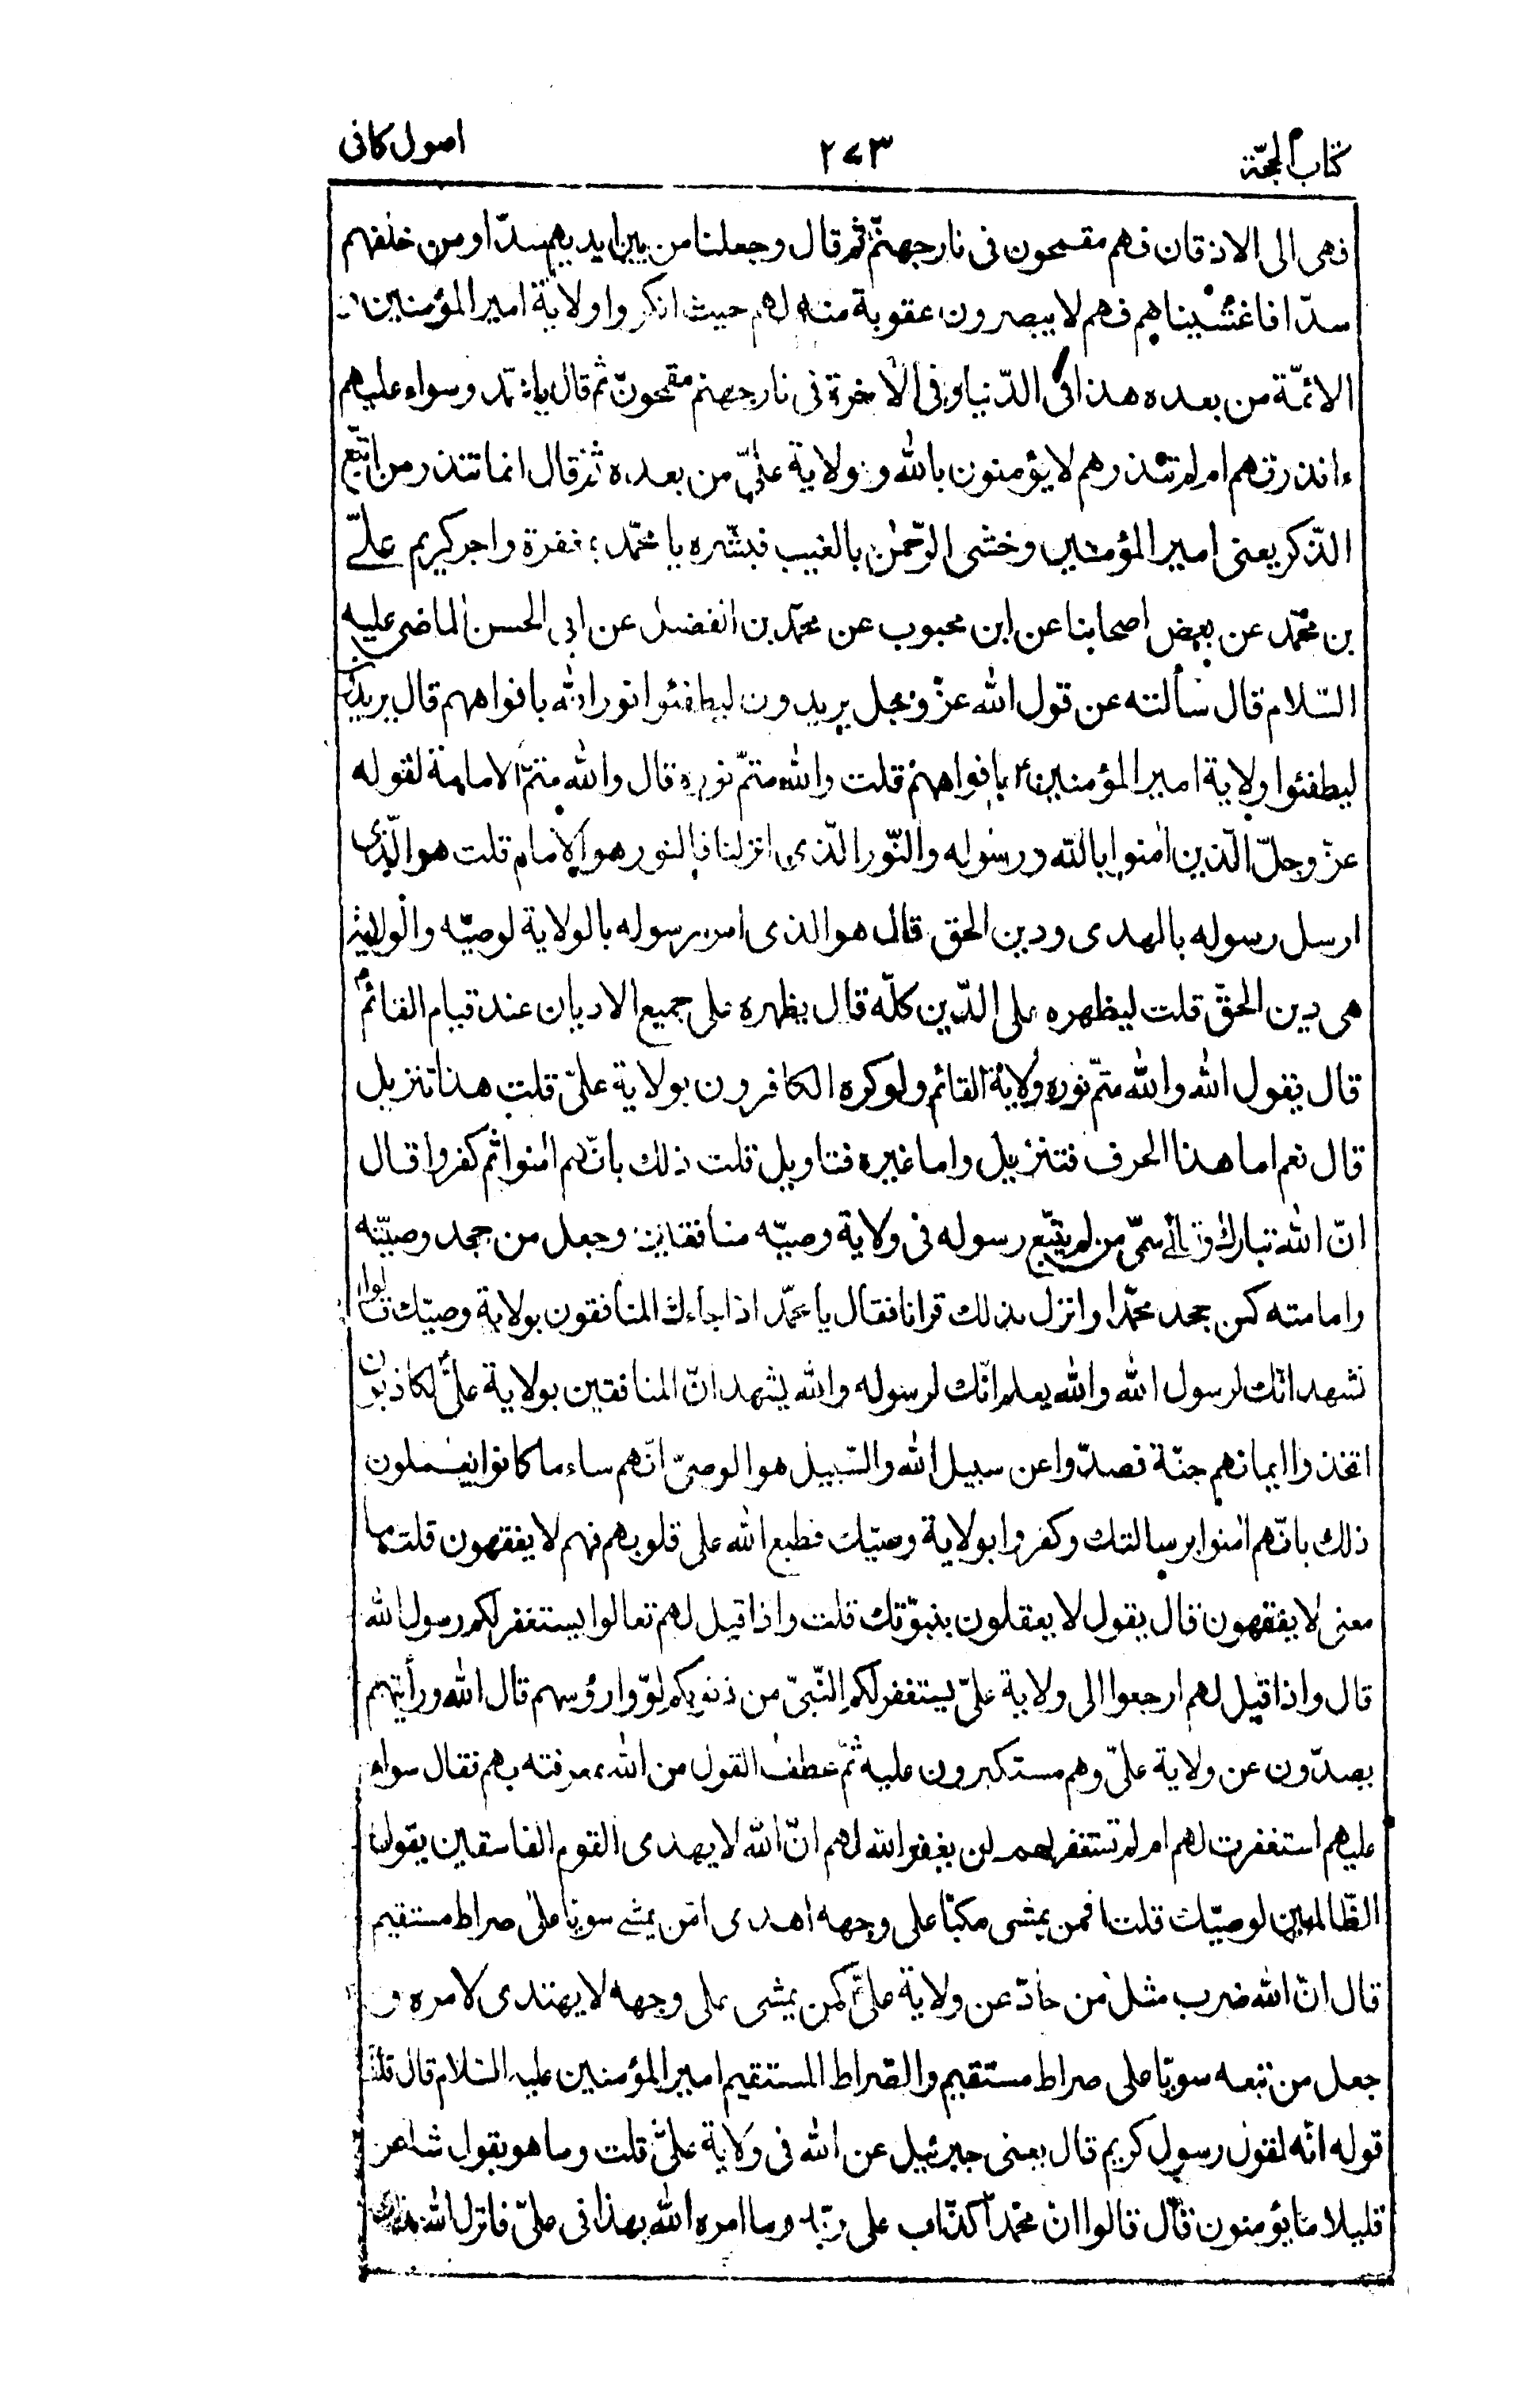 كتاب الحجّة
٢٧٣
اصول كافى
فهى الى الاذقان فهم مقمحون فى نار جهنّم ثم قال وجعلنا من بين ايديهم سدّا ومن خلفهم
سدّا فاغشيناهم فهم لا يبصرون عقوبة منه لهم حيث انكروا ولاية امير المؤمنين و
الائمّة من بعده هذا فى الدّنيا وفى الاخرة فى نار جهنم مقمحون ثم قال يا محمّد وسواء عليهم
ءانذرتهم ام لم تنذرهم لا يؤمنون بالله وبولاية علىّ من بعده ثم قال انما تنذر من اتّبع
الذّكر يعنى امير المؤمنين وخشى الرّحمٰن بالغيب فبشّره يا محمّد بمغفرة واجر كريم علىّ
بن محمّد عن بعض اصحابنا عن ابن محبوب عن محمّد بن الفضيل عن ابى الحسن الماضى عليه
السّلام قال سألته عن قول الله عزّ وجل يريدون ليطفئوا نور الله بافواههم قال يريدون
ليطفئوا ولاية امير المؤمنين بافواههم قلت والله متمّ نوره قال والله متمّ الامامة لقوله
عزّ وجلّ الّذين اٰمنوا بالله ورسوله والنّور الّذى انزلنا فالنور هو الامام قلت هو الّذى
ارسل رسوله بالهدى ودين الحق قال هو الذى امر رسوله بالولاية لوصيّه والولاية
هى دين الحقّ قلت ليظهره على الدّين كلّه قال يظهره على جميع الاديان عند قيام القائم
قال يقول الله والله متمّ نوره ولاية القائم ولو كره الكافرون بولاية علىّ قلت هذا تنزيل
قال نعم اما هذا الحرف فتنزيل واما غيره فتاويل قلت ذلك بانّهم اٰمنوا ثم كفروا قال
انّ الله تبارك وتعالى سمّى من لم يتّبع رسوله فى ولاية وصيّه منافقين وجعل من جحد وصيّه
وامامته كمن جحد محمّدا وانزل بذلك قرانا فقال يا محمّد اذا جاءك المنافقون بولاية وصيّك قالوا
نشهد انّك لرسول الله والله يعلم انّك لرسوله والله يشهد انّ المنافقين بولاية علىّ لكاذبون
اتخذوا ايمانهم جنّة فصدّوا عن سبيل الله والسّبيل هو الوصىّ انّهم ساء ما كانوا يعملون
ذلك بانّهم اٰمنوا برسالتك وكفروا بولاية وصيّك فطبع الله على قلوبهم فهم لا يفقهون قلت ما
معنى لا يفقهون قال يقول لا يعقلون بنبوّتك قلت واذا قيل لهم تعالوا يستغفر لكم رسول الله
قال واذا قيل لهم ارجعوا الى ولاية علىّ يستغفر لكم النّبىّ من ذنوبكم لوّوا رؤسهم قال الله ورأيتهم
يصدّون عن ولاية علىّ وهم مستكبرون عليه ثمّ عطف القول من الله بمعرفته بهم فقال سواء
عليهم استغفرت لهم ام لم تستغفر لهم لن يغفر الله لهم انّ الله لا يهدى القوم الفاسقين يقول
الظّالمين لوصيّك قلت افمن يمشى مكبّا على وجهه اهدى امّن يمشى سويّا على صراط مستقيم
قال انّ الله ضرب مثل من حادّ عن ولاية علىّ كمن يمشى على وجهه لا يهتدى لامره و
جعل من تبعه سويّا على صراط مستقيم والصّراط المستقيم امير المؤمنين عليه السّلام قال قلت
قوله انّه لقول رسول كريم قال يعنى جبرئيل عن الله فى ولاية علىّ قلت وما هو بقول شاعر
قليلا ما يؤمنون قال قالوا انّ محمّدا كذّاب على ربّه وما امره الله بهذا فى علىّ فانزل الله